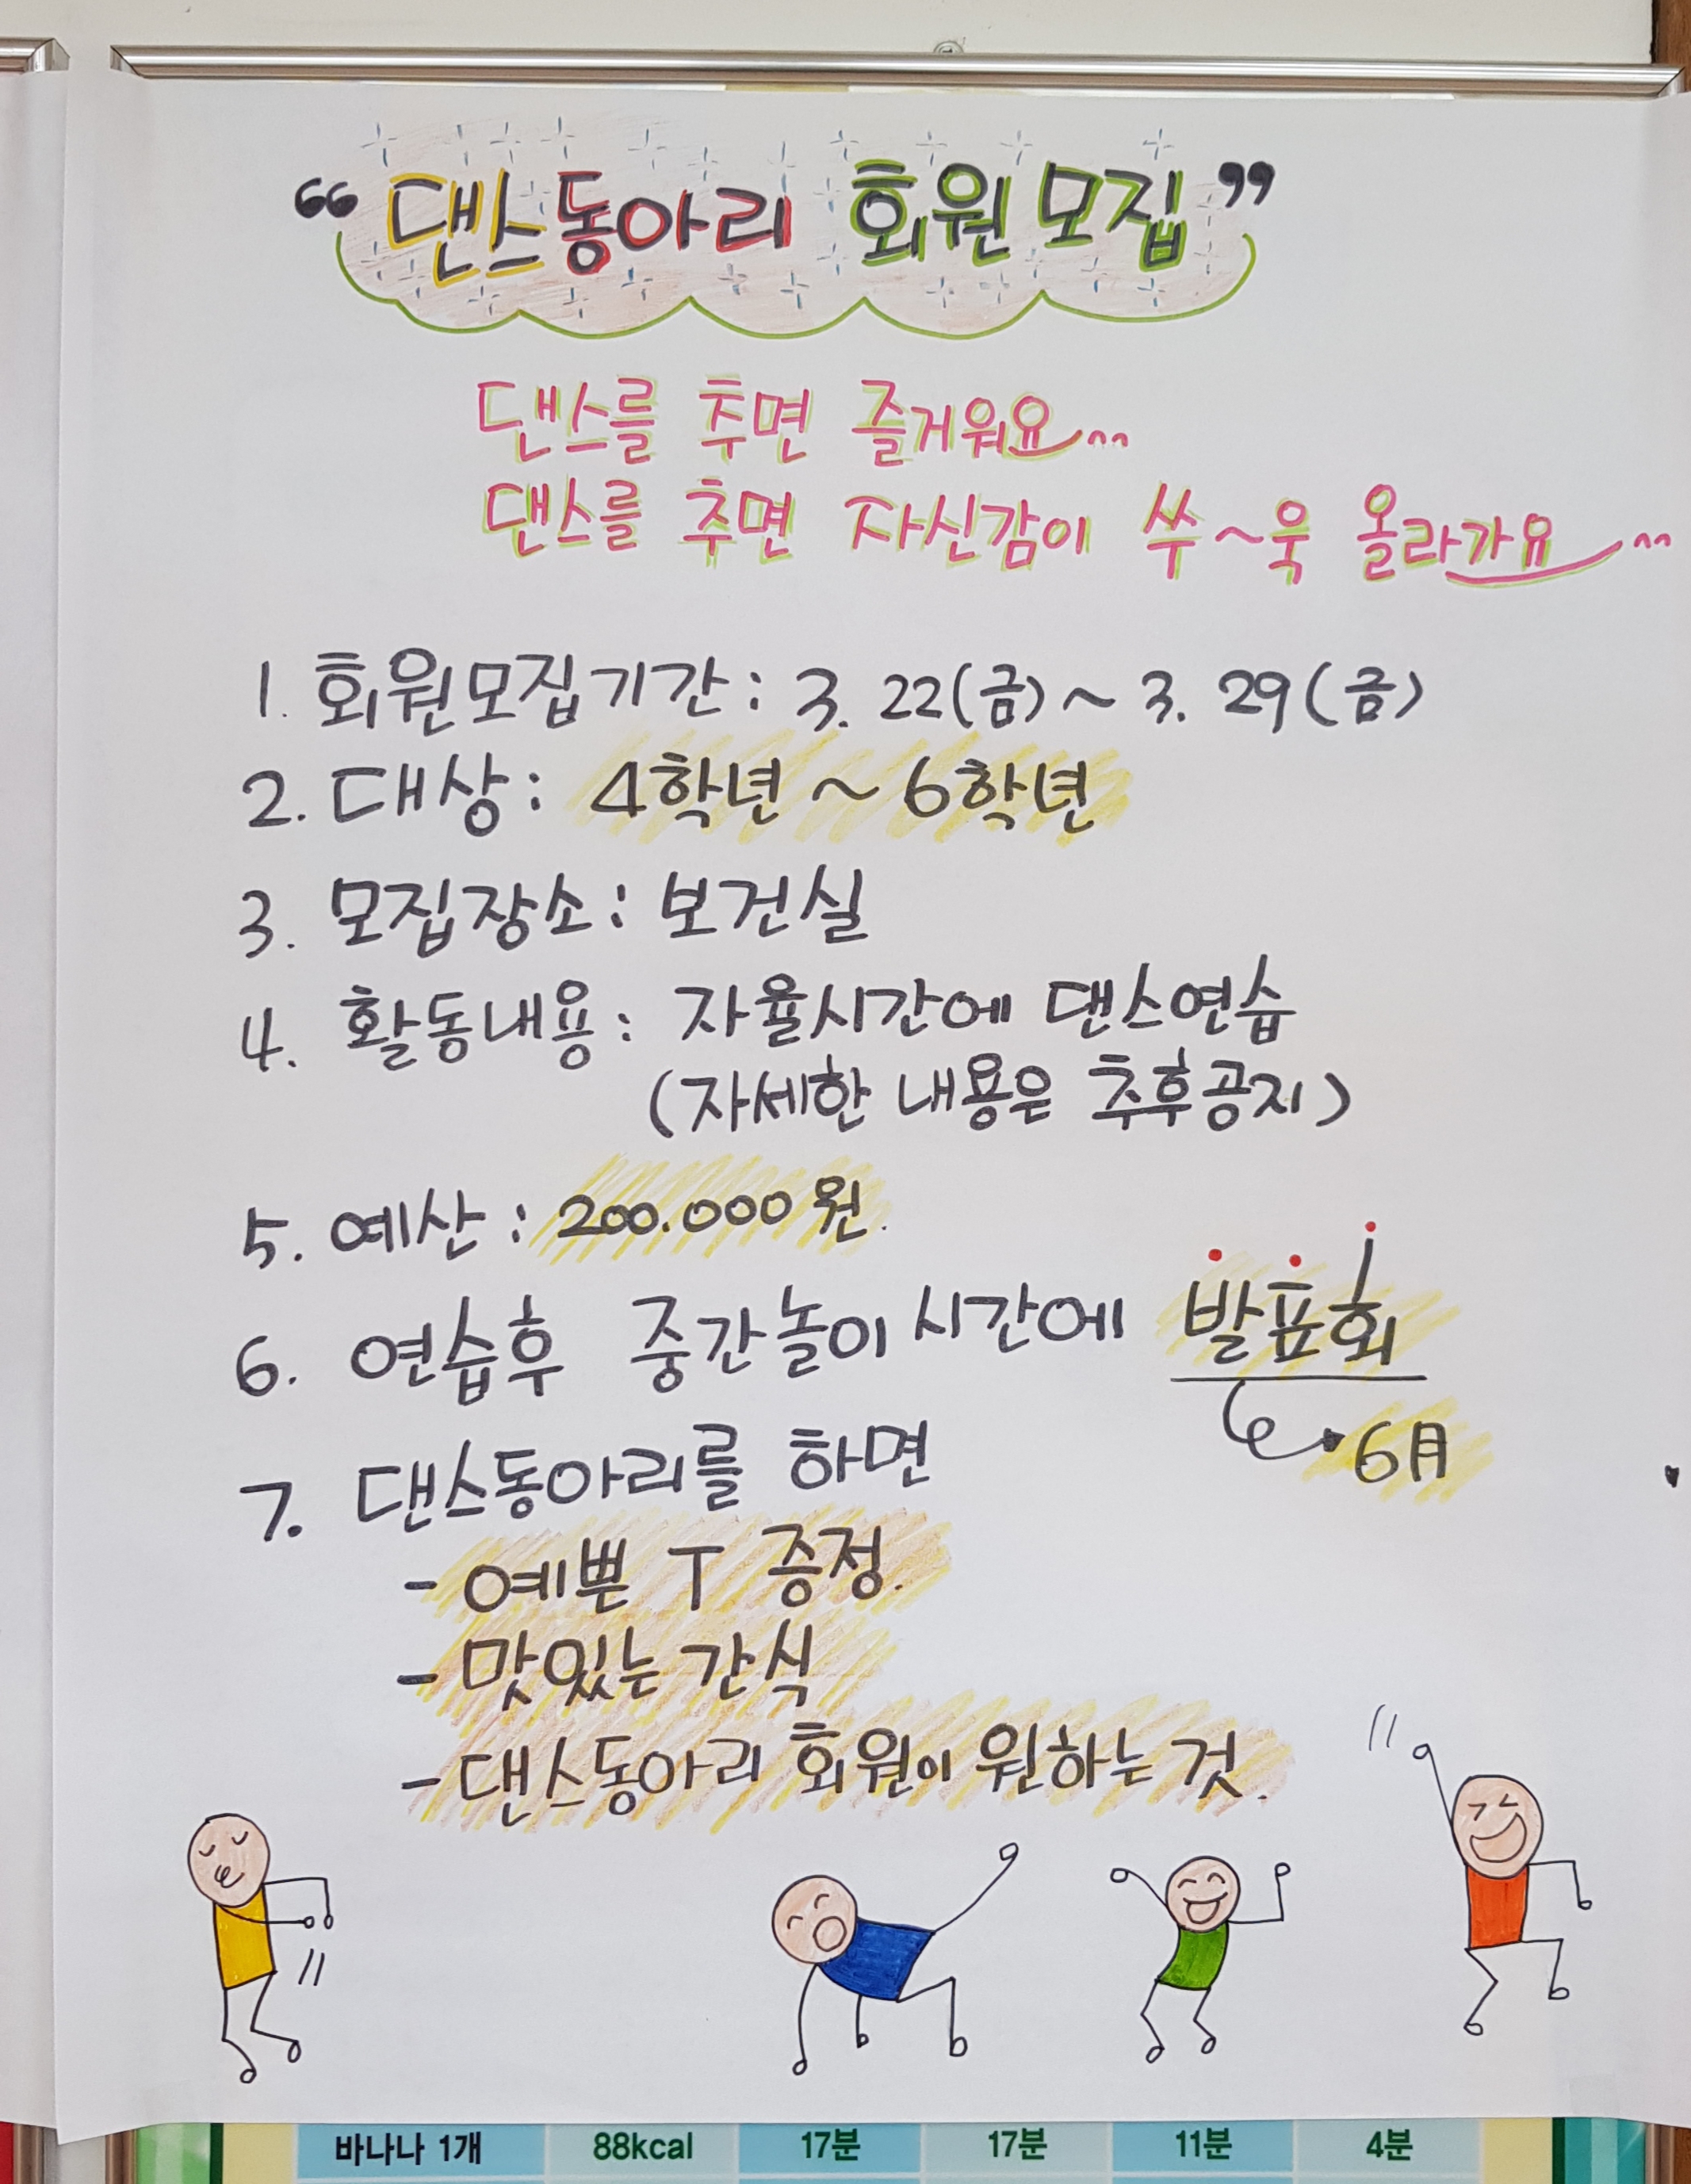 “댄스동아리 회원 모집”
댄스를 추면 즐거워요~^^
댄스를 추면 자신감이 쑤~욱 올라가요~^^
1. 회원모집기간 : 3. 22(금) ~ 3. 29(금)
2. 대상 : 4학년 ~ 6학년
3. 모집장소 : 보건실
4. 활동내용 : 자율시간에 댄스연습
(자세한 내용은 추후공지)
5. 예산 : 200.000원.
6. 연습후 중간놀이 시간에 발표회
6月
7. 댄스동아리를 하면
- 예쁜 T 증정.
- 맛있는 간식
- 댄스동아리 회원이 원하는 것.
바나나 1개 88kcal 17분 17분 11분 4분